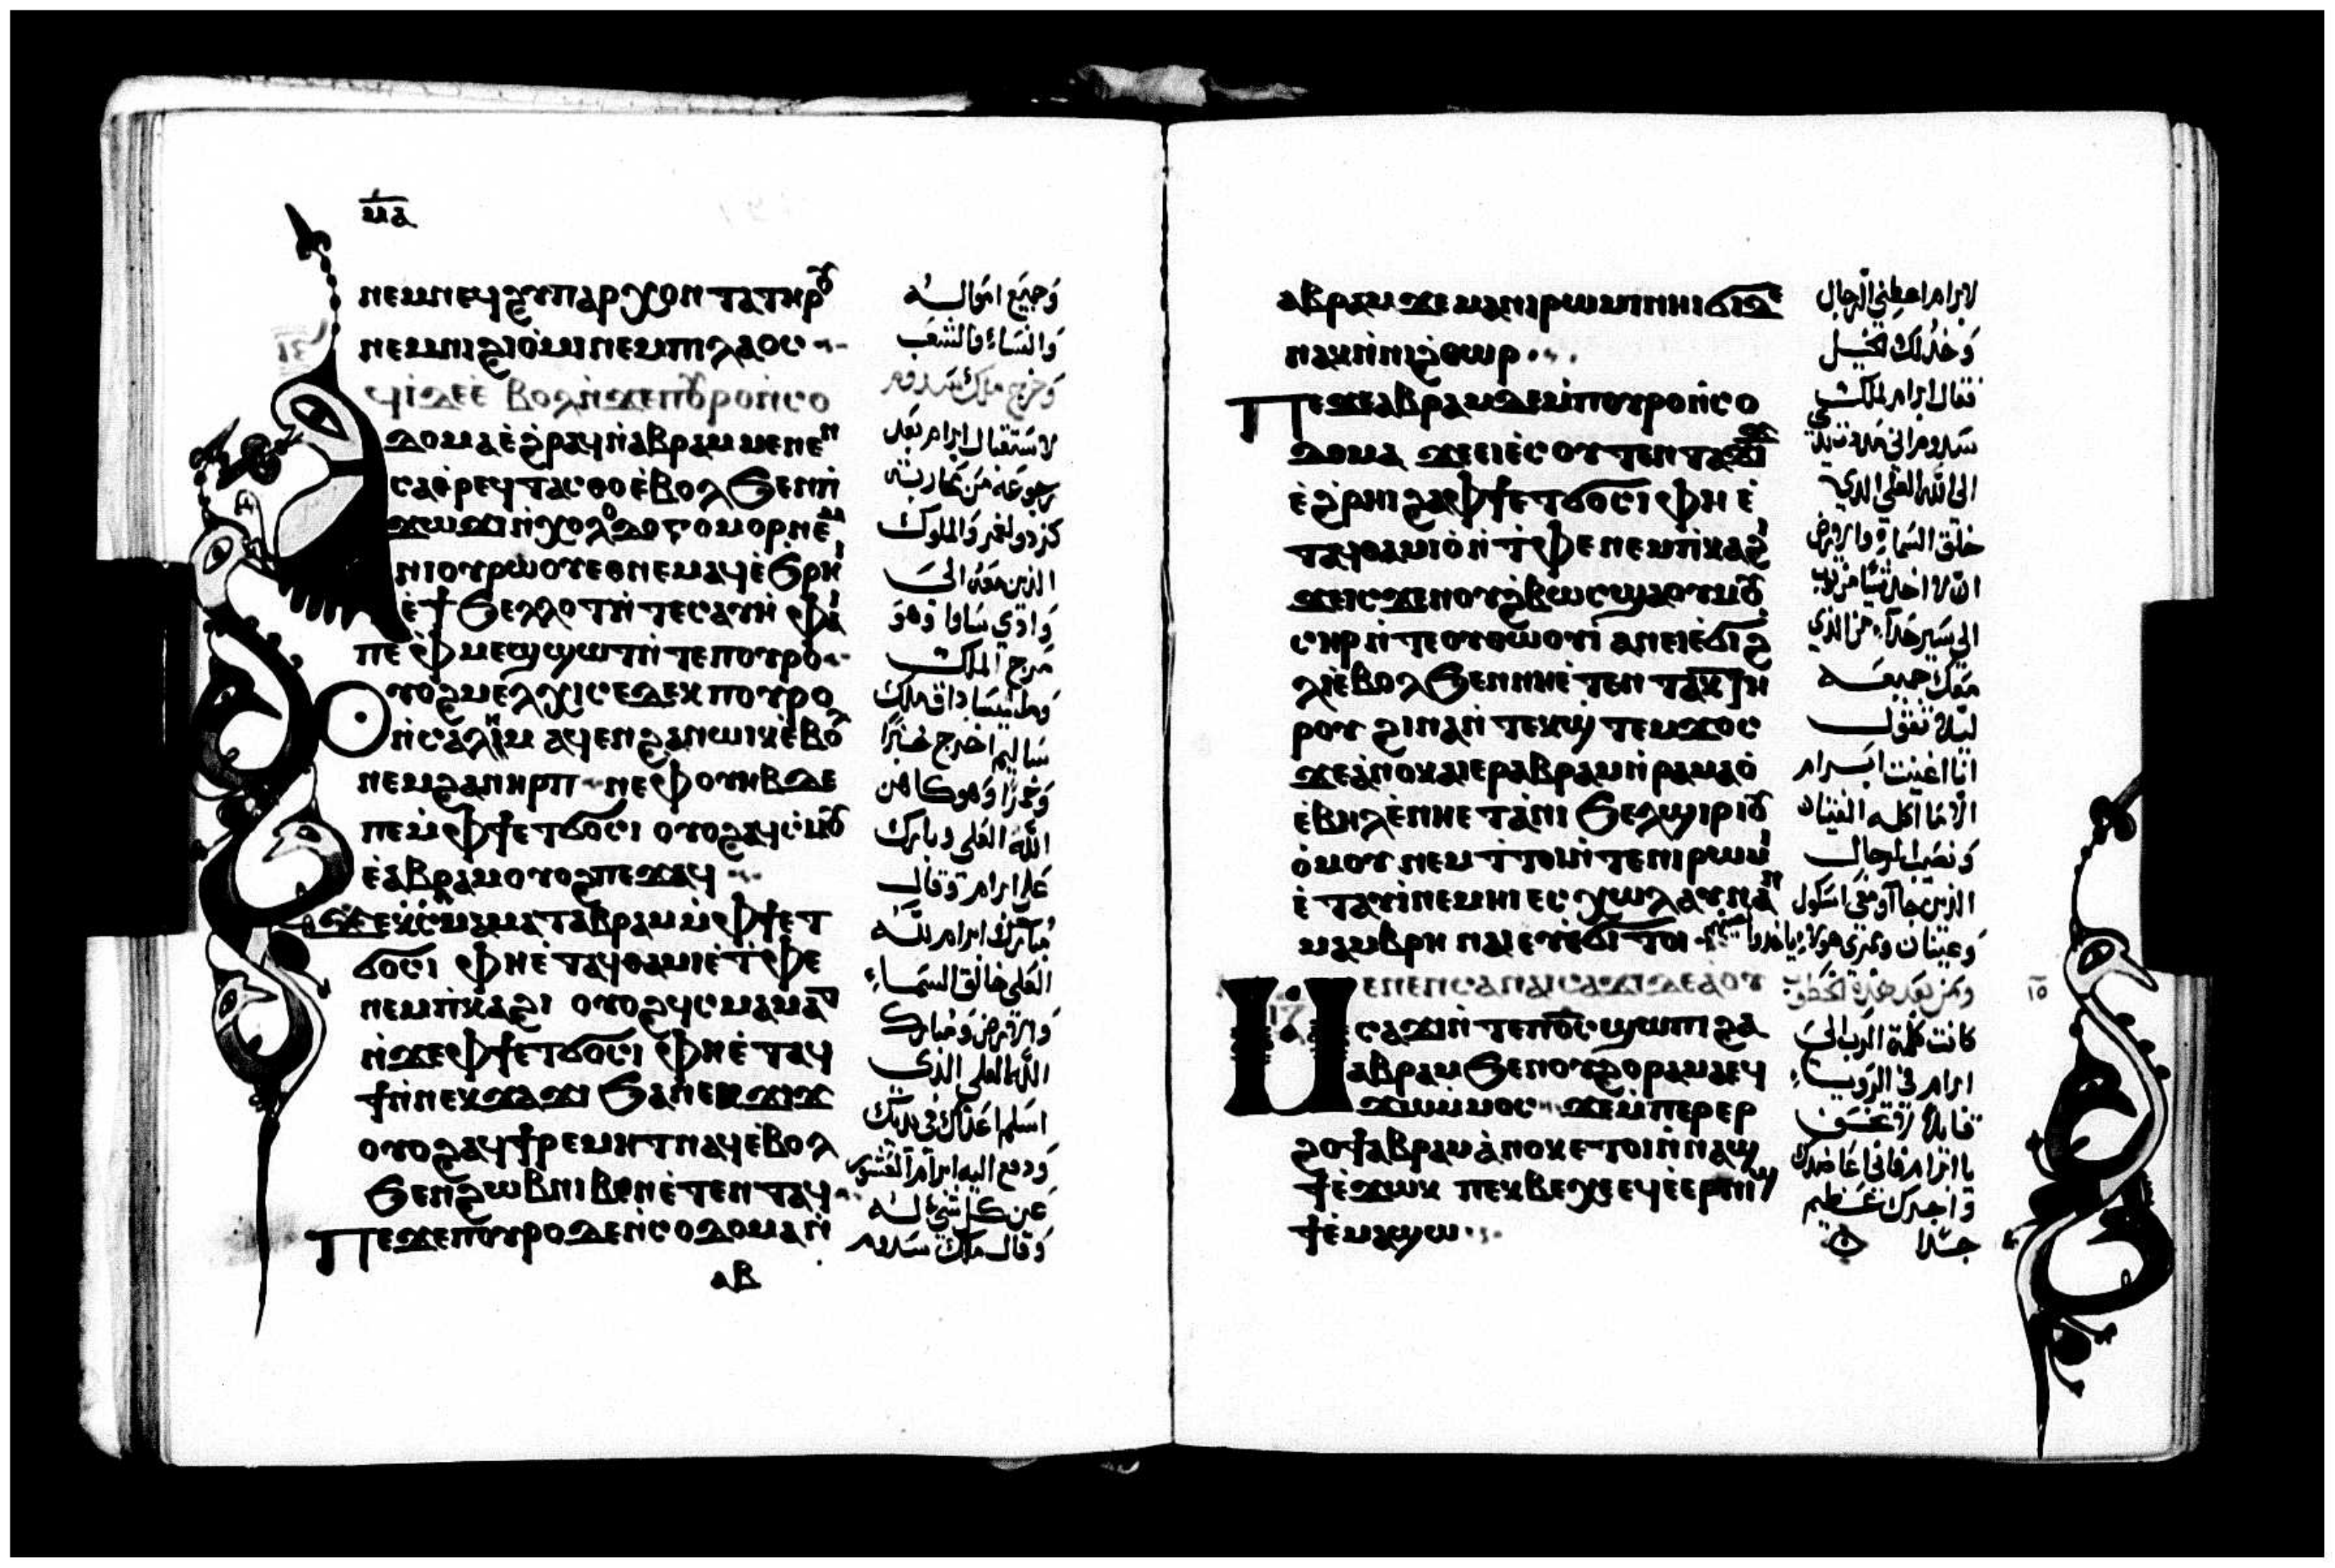 ⲙⲁ
ⲛⲉⲙⲛⲉϥϩⲩⲡⲁⲣⲭⲟⲛⲧⲁⲧⲏⲣⲟⲩ
ⲛⲉⲙⲛⲓϩⲓⲟ̀ⲙⲓ ⲛⲉⲙⲡⲓⲗⲁⲟⲥ
ϥⲓ̀ⲇⲉⲉ̀ ⲃⲟⲗⲛ̀ϫⲉⲡⲟⲩⲣⲟⲛ̀ⲥⲟ
ⲇⲟⲙⲁⲉ̀ϩ̀ⲣⲁϥⲛ̀ⲁⲃⲣⲁⲙ ⲙⲉⲛⲉⲛ
ⲥⲁⲑ̀ⲣⲉϥⲧⲁⲥⲑⲟⲉ̀ⲃⲟⲗϧⲉⲛⲡ̀
ϫⲱϫⲓⲛ̀ⲭⲟⲗⲟⲇⲟⲅⲟⲙⲟⲣⲛⲉⲙ
ⲛⲓⲟⲩⲣⲱⲟⲩⲉⲑⲛⲉⲙⲁϥⲉ̀ϧⲣⲏⲓ
ⲉ̀ϯϧⲉⲗⲗⲟⲧⲛ̀ⲧⲉⲥⲁⲩⲏ ⲫⲁⲓ
ⲡⲉ ⲫ̀ⲙⲉϣϣⲱⲧⲛ̀ⲧⲉⲡⲟⲩⲣⲟ
ⲟⲩⲟϩⲙⲉⲗⲭⲓⲥⲉⲇⲉⲕ ⲡⲟⲩⲣⲟ
ⲛ̀ⲥⲁⲗⲏⲙ ⲁϥⲉⲛϩⲁⲛⲱⲓⲕⲉ̀ⲃⲟⲗ
ⲛⲉⲙϩⲁⲛⲏⲣⲡ ⲛⲉⲫⲟⲩⲏⲃⲇⲉ
ⲡⲉⲙ̀ⲫϯⲉⲧϭⲟⲥⲓ ⲟⲩⲟϩⲁϥⲥ̀ⲙⲟⲩ
ⲉ̀ⲁⲃⲣⲁⲙⲟⲩⲟϩⲡⲉϫⲁϥ
ϫⲉⲕ̀ⲥ̀ⲙⲁⲙⲁⲧⲁⲃⲣⲁⲙⲙ̀ⲫϯⲉⲧ
ϭⲟⲥⲓ ⲫⲏⲉ̀ⲧⲁϥⲑⲁⲙⲓⲉ̀ⲧ̀ⲫⲉ
ⲛⲉⲙⲡ̀ⲕⲁϩⲓ ⲟⲩⲟϩϥⲥⲙⲁⲙⲁⲧ
ⲛ̀ϫⲉⲫϯⲉⲧϭⲟⲥⲓ ⲫⲏⲉ̀ⲧⲁϥ
ϯⲛ̀ⲛⲉⲕϫⲁϫⲓ ϧⲁⲛⲉⲕϫⲓϫ
ⲟⲩⲟϩⲁϥϯⲣⲉⲙⲏⲧⲛⲁϥⲉ̀ⲃⲟⲗ
ϧⲉⲛϩⲱⲃⲛⲓⲃⲉⲛⲉ̀ⲧⲉⲛⲧⲁϥ
ⲡⲉϫⲉⲡⲟⲩⲣⲟⲇⲉⲛ̀ⲥⲟⲇⲟⲙⲁⲛ̀
ⲁⲃ
وجميع امواله
والنساء والشعب
وخرج ملك سدوم
لاستقبال ابرام بعد
رجوعه من محاربته
كزدولغمر والملوك
الذين معه الى
وادي ساوا وهو
مرج الملك
وملشيساداق ملك
ساليم اخرج خبزا
وخمرا وهو كاهن
الله العلي وبارك
على ابرام وقال
مبارك ابرام لله
العلي خالق السماء
والارض ومبارك
الله العلي الذي
اسلم اعداك في يديك
ودفع اليه ابرام العشور
عن كل شي له
وقال ملك سدوم
ⲁⲃⲣⲁⲙ ϫⲉ ⲙⲁⲛⲓⲣⲱⲙⲓⲛⲏⲓϭⲓϩ
ⲛⲁⲕⲛ̀ⲛⲓϩ̀ⲑⲱⲣ
ⲡⲉϫⲉⲁⲃⲣⲁⲙⲇⲉⲙ̀ⲡⲟⲩⲣⲟⲛ̀ⲥⲟ
ⲇⲟⲙⲁ ϫⲉⲉⲓⲉ̀ⲥⲟⲩⲧⲉⲛⲧⲁϫⲓϫ
ⲉ̀ϩ̀ⲣⲏⲓ ϩⲁⲫϯⲉⲧϭⲟⲥⲓ ⲫⲏ ⲉ̀
ⲧⲁϥⲑⲁⲙⲓⲟ̀ⲛ̀ⲧ̀ⲫⲉ ⲛⲉⲙⲡ̀ⲕⲁϩⲓ
ϫⲉⲓⲥϫⲉⲛⲟⲩϩ̀ⲃⲱⲥϣⲁⲟⲩⲙⲟⲩ
ⲥⲏⲣⲛ̀ⲧⲉⲟⲩⲑⲱⲟⲩⲓ̀ ⲁⲛⲉⲓⲉ̀ϭⲓϩ
ⲗⲓⲉ̀ⲃⲟⲗϧⲉⲛⲛⲏⲉ̀ⲧⲉⲛⲧⲁⲕⲧⲏ
ⲣⲟⲩ ϩⲓⲛⲁⲛ̀ⲧⲉⲕϣ̀ⲧⲉⲙϫⲟⲥ
ϫⲉⲁ̀ⲛⲟⲕⲁⲓⲉⲣⲁⲃⲣⲁⲙⲛ̀ⲣⲁⲙⲁⲟ̀
ⲉ̀ⲃⲏⲗⲉ̀ⲛⲏⲉⲧⲁ̀ⲛⲓ ϧⲉⲗϣⲓⲣⲓⲟⲩ
ⲟ̀ⲙⲟⲩ ⲛⲉⲙⲧ̀ⲧⲟⲓⲛ̀ⲧⲉⲛⲓⲣⲱⲙⲓ
ⲉ̀ⲧⲁⲩⲓ̀ⲛⲉⲙⲏⲓ ⲉⲥⲭⲱⲗⲁⲩⲛⲁⲛ
ⲙⲁⲙⲃⲣⲏ ⲛⲁⲓⲉⲩⲉ̀ϭⲓⲧⲟⲓ
ⲙⲉⲛⲉⲛⲥⲁⲛⲁⲓⲥⲁϫⲓⲇⲉⲁ̀ⲟⲩ
ⲥⲁϫⲓⲛ̀ⲧⲉⲡⲟ̅ⲥ̅ϣⲱⲡⲓ ϩⲁ
ⲁⲃⲣⲁⲙ ϧⲉⲛⲟⲩϩⲟⲣⲁⲙⲁⲉϥ
ϫⲱⲙ̀ⲙⲟⲥ ϫⲉⲙ̀ⲡⲉⲣⲉⲣ
ϩⲟϯⲁⲃⲣⲁⲙⲁ̀ⲛⲟⲕⲉⲧⲟⲓⲛ̀ⲛⲁϣ
ϯⲉ̀ϫⲱⲕ ⲡⲉⲕⲃⲉⲭⲉⲉϥⲉ̀ⲉⲣⲛⲓϣ
ϯⲉ̀ⲙⲁϣⲱ
لابرام اعطني الرجال
وخذ لك الخيل
فقال ابرام لملك
سدوم اني مدت يدي
الى الله العلي الذي
خلق السماء والارض
ان لا اخذ شيا من ثوب
الى سير حذاء من الذي
معك جميعه
ليلا تقول
انا اغنيت ابرام
الا ما اكله الفتيان
ونصيب الرجال
الذين جاوا معي اسكول
وعينان وممري هولاء ياخذوا
ومن بعد هذه الخطوب
١٥
كانت كلمة الرب الى
ابرام في الرويا
قايلا لا تخف
يا ابرام فاني عاضدك
واجرك عظيم
جدا